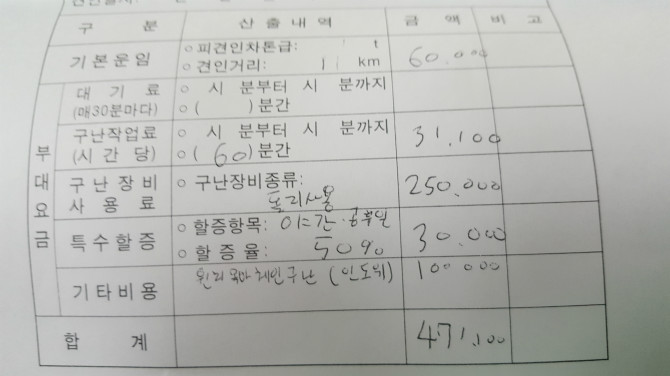 구 분 산 출 내 역 금 액 비 고
기본운임 ○ 피견인차톤급: t 60.000
○ 견인거리: 11 km
부대요금
대 기 료 ○ 시 분부터 시 분까지
(매30분마다) ○ ( )분간
구난작업료 ○ 시 분부터 시 분까지 31,100
(시 간 당) ○ ( 60 )분간
구난장비 ○ 구난장비종류: 250.000
사 용 료 돌리사용
특수할증 ○ 할증항목: 야간·공휴일 30.000
○ 할 증 율: 50%
기타비용 체인구난 (인도위) 100 000
합 계 471,100